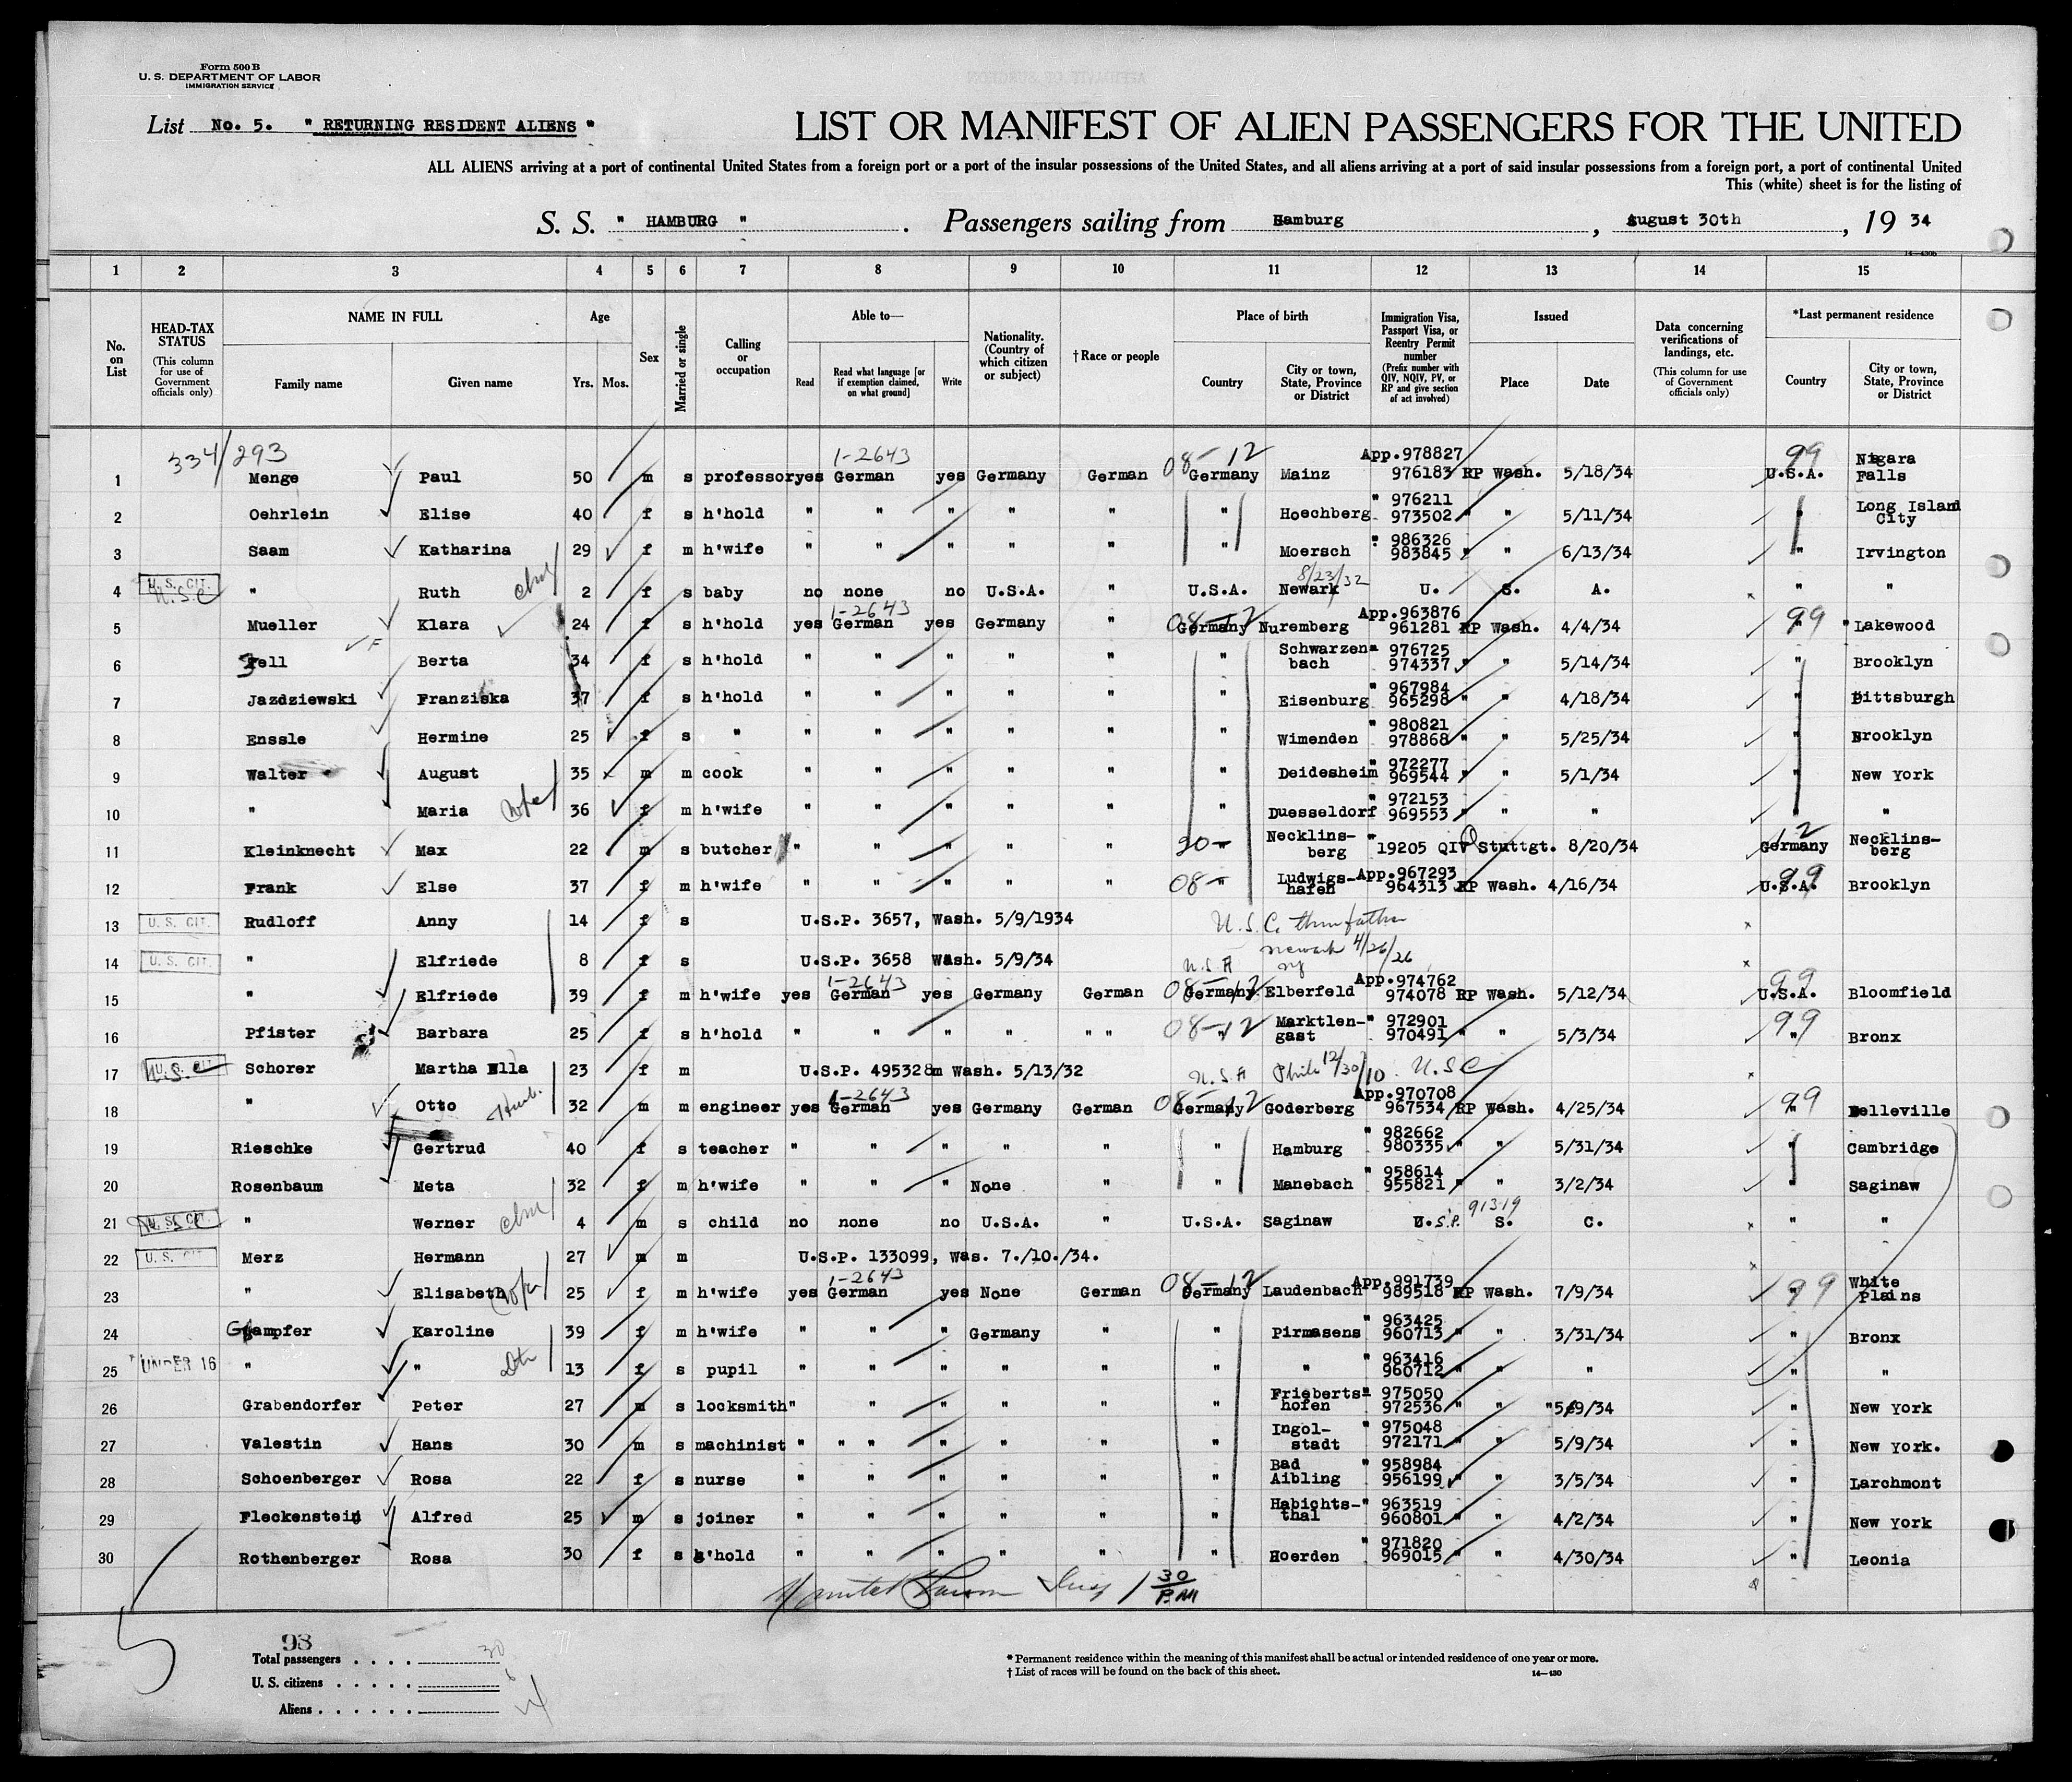 Form 500 B
U. S. DEPARTMENT OF LABOR
IMMIGRATION SERVICE
List No. 5. " RETURNING RESIDENT ALIENS "
LIST OR MANIFEST OF ALIEN PASSENGERS FOR THE UNITED
ALL ALIENS arriving at a port of continental United States from a foreign port or a port of the insular possessions of the United States, and all aliens arriving at a port of said insular possessions from a foreign port, a port of continental United
This (white) sheet is for the listing of
S. S. " HAMBURG " . Passengers sailing from Hamburg , August 30th , 19 34
14—430b
1 2 3 4 5 6 7 8 9 10 11 12 13 14 15
No. on List
HEAD-TAX STATUS (This column for use of Government officials only)
NAME IN FULL Family name Given name
Age Yrs. Mos.
Sex
Married or single
Calling or occupation
Able to— Read Read what language [or if exemption claimed, on what ground] Write
Nationality. (Country of which citizen or subject)
† Race or people
Place of birth Country City or town, State, Province or District
Immigration Visa, Passport Visa, or Reentry Permit number (Prefix number with QIV, NQIV, PV, or RP and give section of act involved)
Issued Place Date
Data concerning verifications of landings, etc. (This column for use of Government officials only)
*Last permanent residence Country City or town, State, Province or District
334/293 1-2643 08-12 App.978827 99 Niagara
1 Menge Paul 50 m s professor yes German yes Germany German Germany Mainz 976183 RP Wash. 5/18/34 U.S.A. Falls
2 Oehrlein Elise 40 f s h'hold " " " " " " Hoechberg " 976211 973502 " " 5/11/34 " Long Island City
3 Saam Katharina 29 f m h'wife " " " " " " Moersch " 986326 983845 " " 6/13/34 " Irvington
8/23/32
4 U. S. CIT. U.S.C " Ruth 2 f s baby no none no U.S.A. " U.S.A. Newark U. S. A. " "
1-2643
5 Mueller Klara 24 f s h'hold yes German yes Germany " 08-12 Germany Nuremberg App.963876 961281 RP Wash. 4/4/34 99 " Lakewood
6 Fell Berta 34 f s h'hold " " " " " " Schwarzenbach " 976725 974337 " " 5/14/34 " Brooklyn
7 Jazdziewski Franziska 37 f s h'hold " " " " " " Eisenburg " 967984 965298 " " 4/18/34 " Pittsburgh
8 Enssle Hermine 25 f s " " " " " " " Wimenden " 980821 978868 " " 5/25/34 " Brooklyn
9 Walter August 35 m m cook " " " " " " Deidesheim " 972277 969544 " " 5/1/34 " New York
10 " Maria 36 f m h'wife " " " " " " Duesseldorf " 972153 969553 " " " " "
11 Kleinknecht Max 22 m s butcher " " " " " " Necklins-berg " 19205 QIV Stuttgt. 8/20/34 12 Germany Necklins-berg
12 Frank Else 37 f m h'wife " " " " " 08- " Ludwigs-hafen App.967293 964313 RP Wash. 4/16/34 99 U.S.A. Brooklyn
13 U. S. CIT. Rudloff Anny 14 f s U.S.P. 3657, Wash. 5/9/1934 U.S.C. thru father
Newark 4/26/26
14 U. S. CIT. " Elfriede 8 f s U.S.P. 3658 Wash. 5/9/34 U.S.A NJ
1-2643
15 " Elfriede 39 f m h'wife yes German yes Germany German 08-12 Germany. Elberfeld App.974762 974078 RP Wash. 5/12/34 99 U.S.A. Bloomfield
16 Pfister Barbara 25 f s h'hold " " " " " " 08-12 " Marktlen-gast " 972901 970491 " " 5/3/34 99 " Bronx
17 U. S. CIT. U.S.C Schorer Martha Ella 23 f m U.S.P. 495328m Wash. 5/13/32 U.S.A Phila 12/30/10 U.S.C
1-2643
18 " Otto Husb. 32 m m engineer yes German yes Germany German 08-12 Germany Goderberg App.970708 967534 RP Wash. 4/25/34 99 " Belleville
19 Rieschke Gertrud 40 f s teacher " " " " " " Hamburg " 982662 980335 " " 5/31/34 " Cambridge
20 Rosenbaum Meta 32 f m h'wife " " " None " " Manebach " 958614 955821 " " 3/2/34 " Saginaw
91319
21 U. S. CIT. " Werner 4 m s child no none no U.S.A. " U.S.A. Saginaw U.S.P. S. C. " "
22 U. S. CIT. Merz Hermann 27 m m U.S.P. 133099, Was. 7./10./34.
1-2643
23 " Elisabeth 25 f m h'wife yes German yes None German 08-12 Germany Laudenbach App.991739 989518 RP Wash. 7/9/34 99 " White Plains
24 Gampfer Karoline 39 f m h'wife " " " Germany " " Pirmasens " 963425 960713 " " 3/31/34 " Bronx
25 UNDER 16 " " 13 f s pupil " " " " " " " " 963416 960712 " " " " "
26 Grabendorfer Peter 27 m s locksmith " " " " " " Frieberts-hofen " 975050 972536 " " " 5/9/34 " New York
27 Valestin Hans 30 m s machinist " " " " " " " Ingol-stadt " 975048 972171 " " 5/9/34 " New York.
28 Schoenberger Rosa 22 f s nurse " " " " " " Bad Aibling " 958984 956199 " " 3/5/34 " Larchmont
29 Fleckenstein Alfred 25 m s joiner " " " " " " Habichts-thal " 963519 960801 " " 4/2/34 " New York
30 Rothenberger Rosa 30 f s h'hold " " " " " " Hoerden " 971820 969015 " " 4/30/34 " Leonia
1 30 P.M
5
93
Total passengers . . . . 30
U. S. citizens . . . . . 6
Aliens . . . . . . 24
* Permanent residence within the meaning of this manifest shall be actual or intended residence of one year or more.
† List of races will be found on the back of this sheet.
14—430